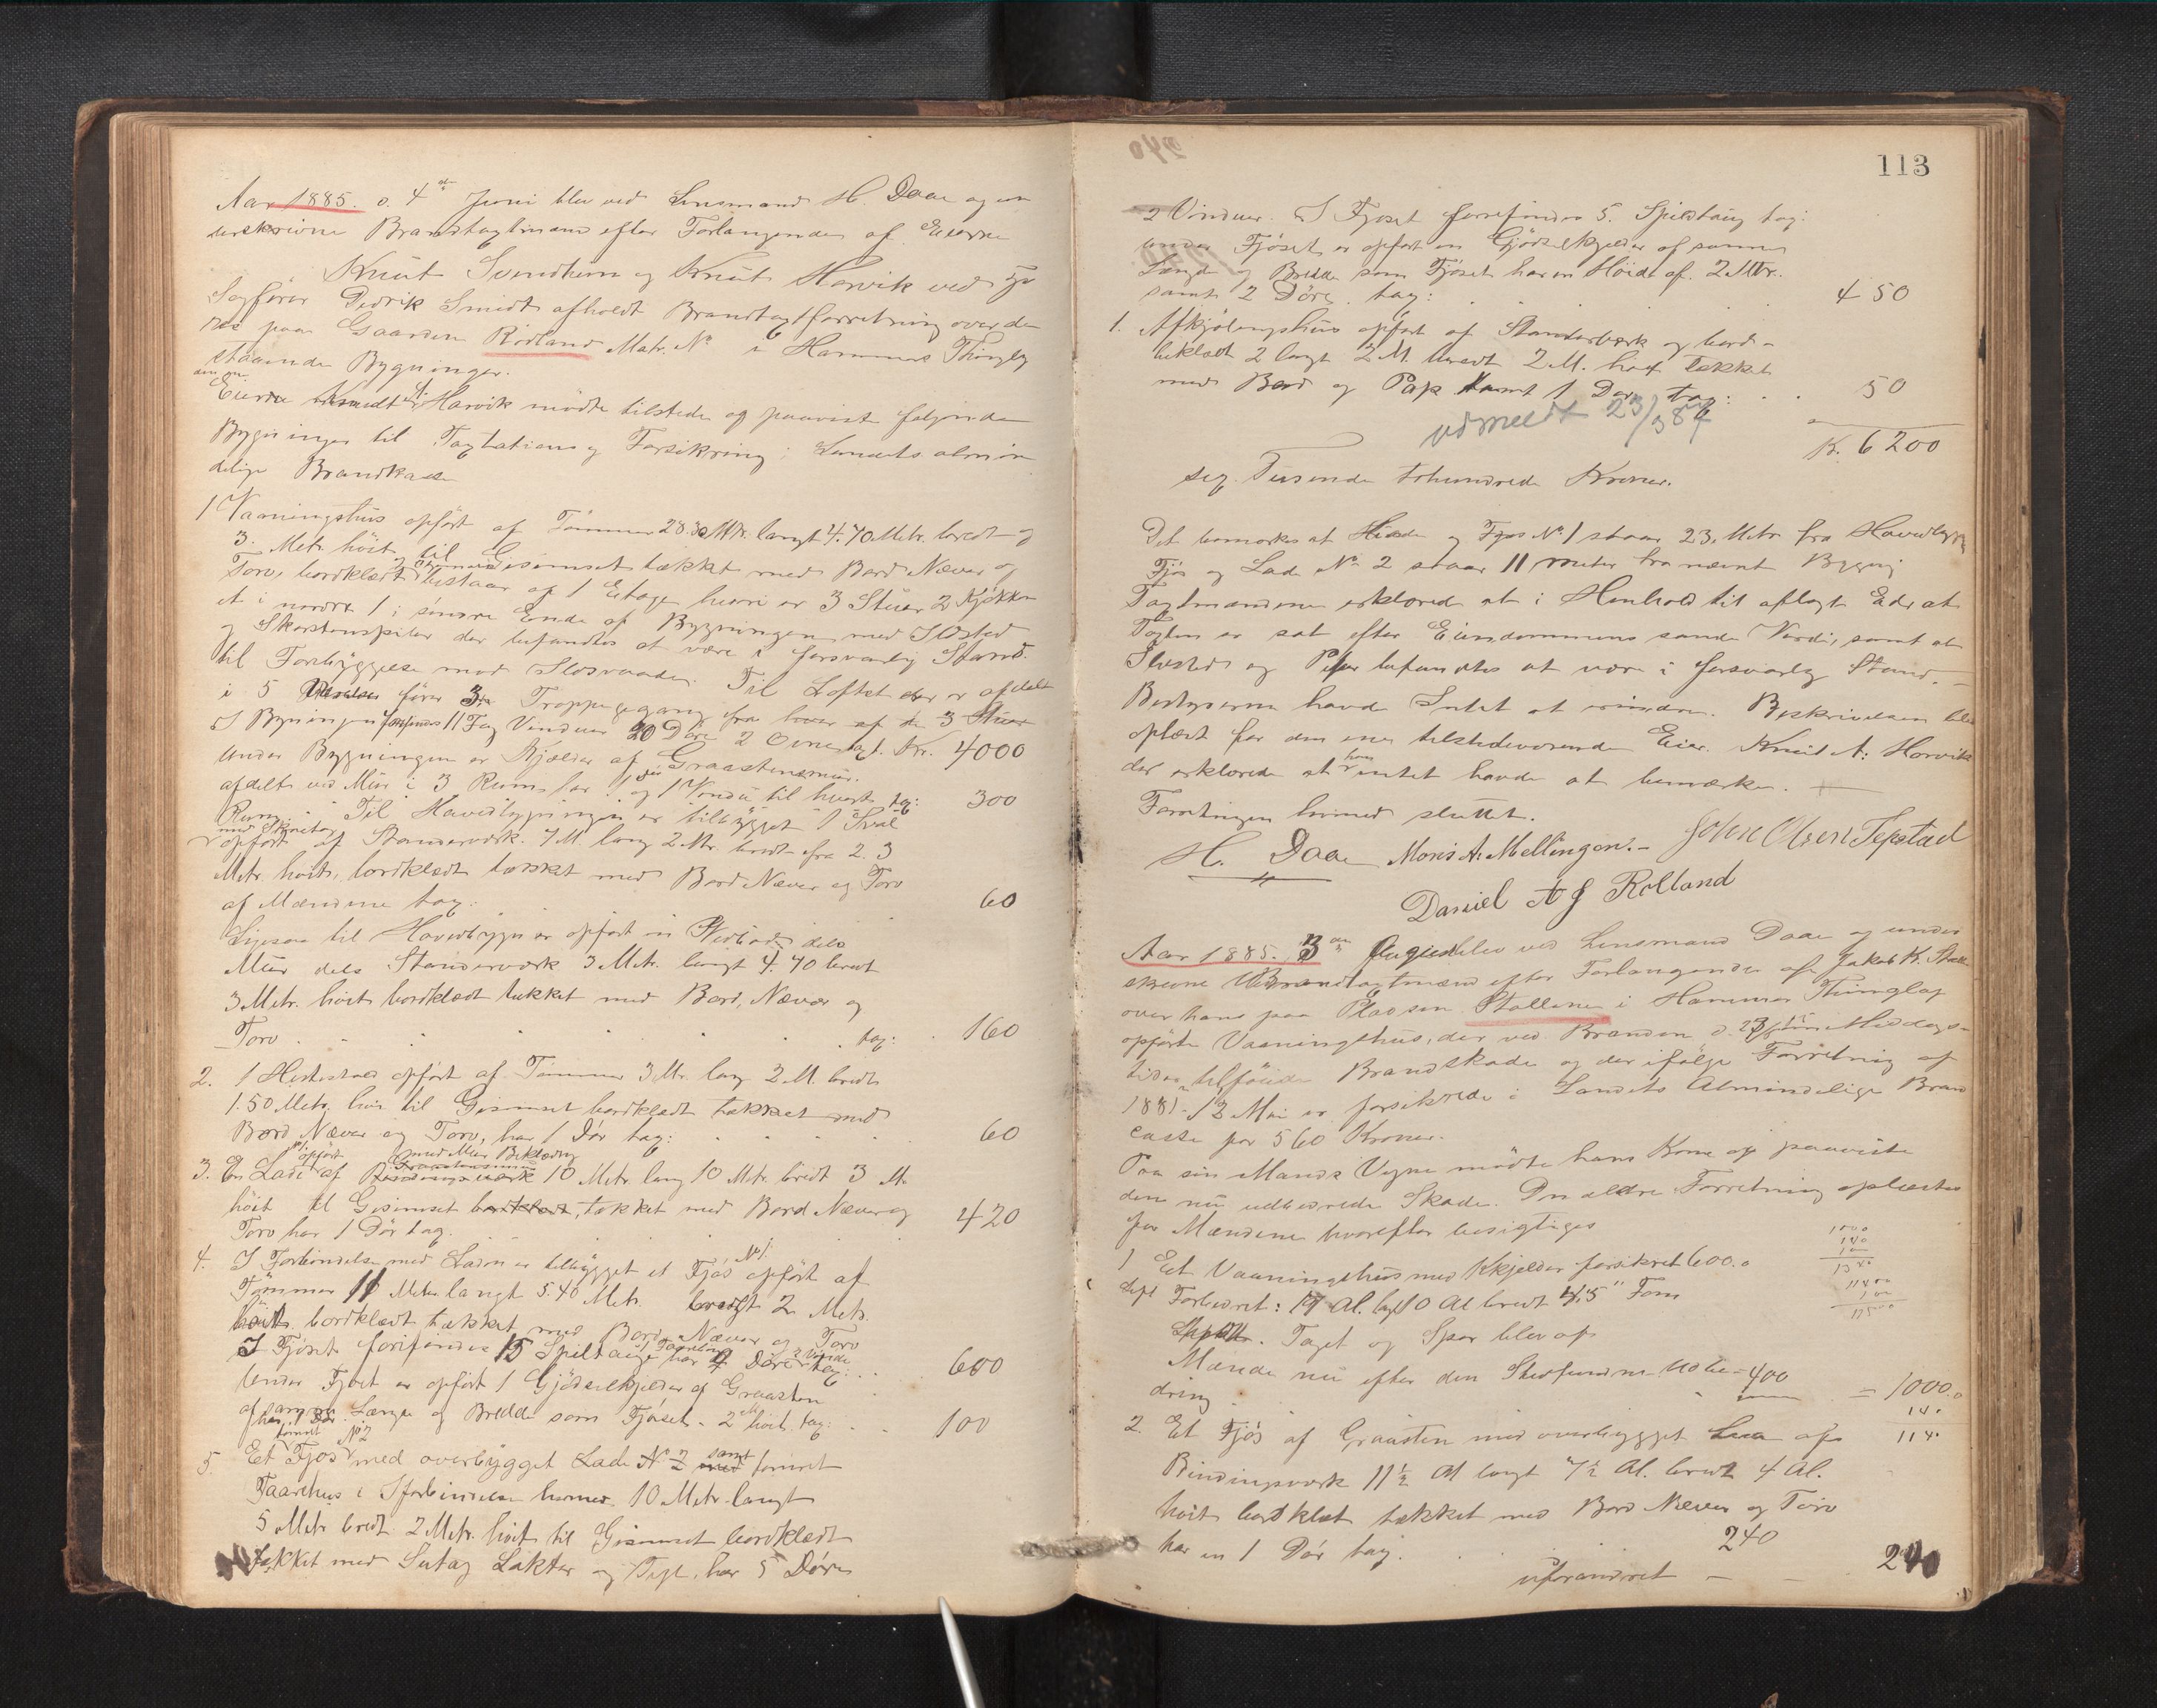 Aar 1885. d. 4de Juni blev ved Lensmand H. Daae og un
derskrevne Brandtagtmænd efter Forlangende af Eierne
Knut Svendheim og Knut Harvik ved
Sagfører Didrik Smidt afholdt Brandtagtforretning over de
paa Gaarden Rödland Matr. No i Hammers Thinglag
staaende Bygninger.
den ene
Eierne Harvik mödte tilstede og paaviste følgende
Bygninger til Taxtation og Forsikring i Landets almin
delige Brandkasse
1 Vaaningshus opført af Tømmer 28.30 Mtr. langt 4.70 Metr. bredt og
3. Metr. höit til Gesimset tækket med Bord Næver og
Torv, bordklædt bestaar af 1 Etage hvori er 3 Stuer 2 Kjøkken
et i nordre 1 i söndre Ende af Bygningen med Ildsted
og Skorstenspiber der befandtes at være i forsvarlig Stand
til Forebyggelse mod Ildsvaade. Til Loftet der er afdelt
i 5 förer 3 Trappegang fra hver af de 3 Stuer
I Bygningen forefindes 11 Fag Vinduer 20 Døre 2 Ovne tagt. Kr. 4000
Under Bygningen er Kjælder af Graastensmur.
afdelt ved Mur i 3 Rum har 1 Dör og 1 Vindu til hvert tag: 300
Rum. Til Hovedbygningen er tilbygget 1 Sval
med Skurtag
opført af Standerværk. 7 M lang 2 Mtr. bredt fra 2. 3
Metr. höit, bordklædt tækket med Bord Næver og Torv
af Mændene tag: 60
Ligesaa til Hovedbygn er opført en Vedbod dels
Mur dels Standerværk 3 Metr. langt 4.70 bredt
3 Metr. höit bordklædt tækket med Bord, Næver og
Torv . . . . . tag: 160
2. 1 Hestestald opført af Tømmer 3 Mr. lang 2 M. bredt
1.50 Metr. höi til Gesimset bordklædt tækket med
Bord Næver og Torv, har 1 Dör tag: . . . 60
No 1. opført med Mur Beklædning
Graastensmur
3. En Lade af 10 Metr. lang 10 Mtr. bredt 3 M.
höit til Gesimset bordklædt, tækket med Bord Næver og
Torv har 1 Dör tag. 420
No 1.
4. I Forbindelse med Laden er tilbygget et Fjös opført af
Tømmer 11 Meter langt 5.40 Metr. bredt 2 Metr.
höit bordklædt tækket med Bord Næver og Torv
I Fjöset forefindes 15 Spiltauge har 4 Döre tag: . . 600
Under Fjöset er opført 1 Gjödselkjelder af Graasten
af samme Længde og Bredde som Fjöset. 2 M höit tag: . . 100
har 1 Dör
tømret No 2
5. Et Fjøs med overbygget Lade No 2 samt tømret
Faarehus i Forbindelse hermed 10 Metr. langt
5 Metr. bredt 2 Metr. höit til Gesimset bordklædt
tækket med Sutag Lækter og Tegl, har 5 Döre
113
2 Vinduer. I Fjoset forefindes 5. Spildtaug tag:
under Fjöset er opført en Gjödselkjelder af samme
Længde og Bredde som Fjöset har en Höide af. 2 Mtr.
samt 2 Döre. tag: . . . . 450
1. Afkjölingshus opfört af Standerværk og bord-
beklædt 2 langt 2 M. bredt 2 M. höit tækket
med Bord og Pap samt 1 Dör tag: . . 50
udmeldt 23/3 87
Kr. 6200
sex Tusende tohundrede Kroner.
Det bemærkes at Lade og Fjøs No. 1 staar 23. Metr fra Hovedbygn
Fjös og Lade No. 2 staar 11 meter fra nævnt Bygning
Taxtmændene erklærede at i Henhold til aflagt Ed at
Taxten er sat efter Eiendommens sande Værdi, samt at
Ildsted og Piber befandtes at være i forsvarlig Stand. —
Bestyrerne havde Intet at erindre. Beskrivelsen blev
oplæst for den ene tilstedeværende Eier. Knud A: Harvik
der erklærede at han intet havde at bemærke.
Forretningen hermed sluttet.
H. Daae Mons A. Mellingen.- John Olsen Tepstad
Daniel A J Rolland
Aar 1885. 3die August blev ved Lensmand Daae og under
skrevne Brandtagtmænd efter Forlangende af Jakob K.
over hans paa Pladsen Stallene i Hammer Thinglag
opförte Vaaningshus, der ved Branden d. Middags-
tider tilføiede Brandskade og der ifølge Forretning af
1881 12 Mai er forsikrede i Landets Almindelige Brand
casse for 560 Kroner.
Paa sin Mands Vegne mödte hans Kone og paaviste
den nu udbedrede Skade. Den ældre Forretning oplæstes
for Mændene hvorefter besigtiges
1 Et Vaaningshus med Kjelder forsikret 600.
Forbedret: 17 Al. lagt 10 Al bredt 4,5" Fom
Taget og Spær blev af
Mænde nu efter den Stedfundne Udbe- 400
dring . . = 1000.
140
1140
2. Et Fjös af Graasten med overbygget Lade af
Bindingsværk 11½ Al langt 7½ Al. bredt 4 Al.
höit bordklædt tækket med Bord Næver og Torv
har en 1 Dör tag. . . . 240
uforandret — — 240